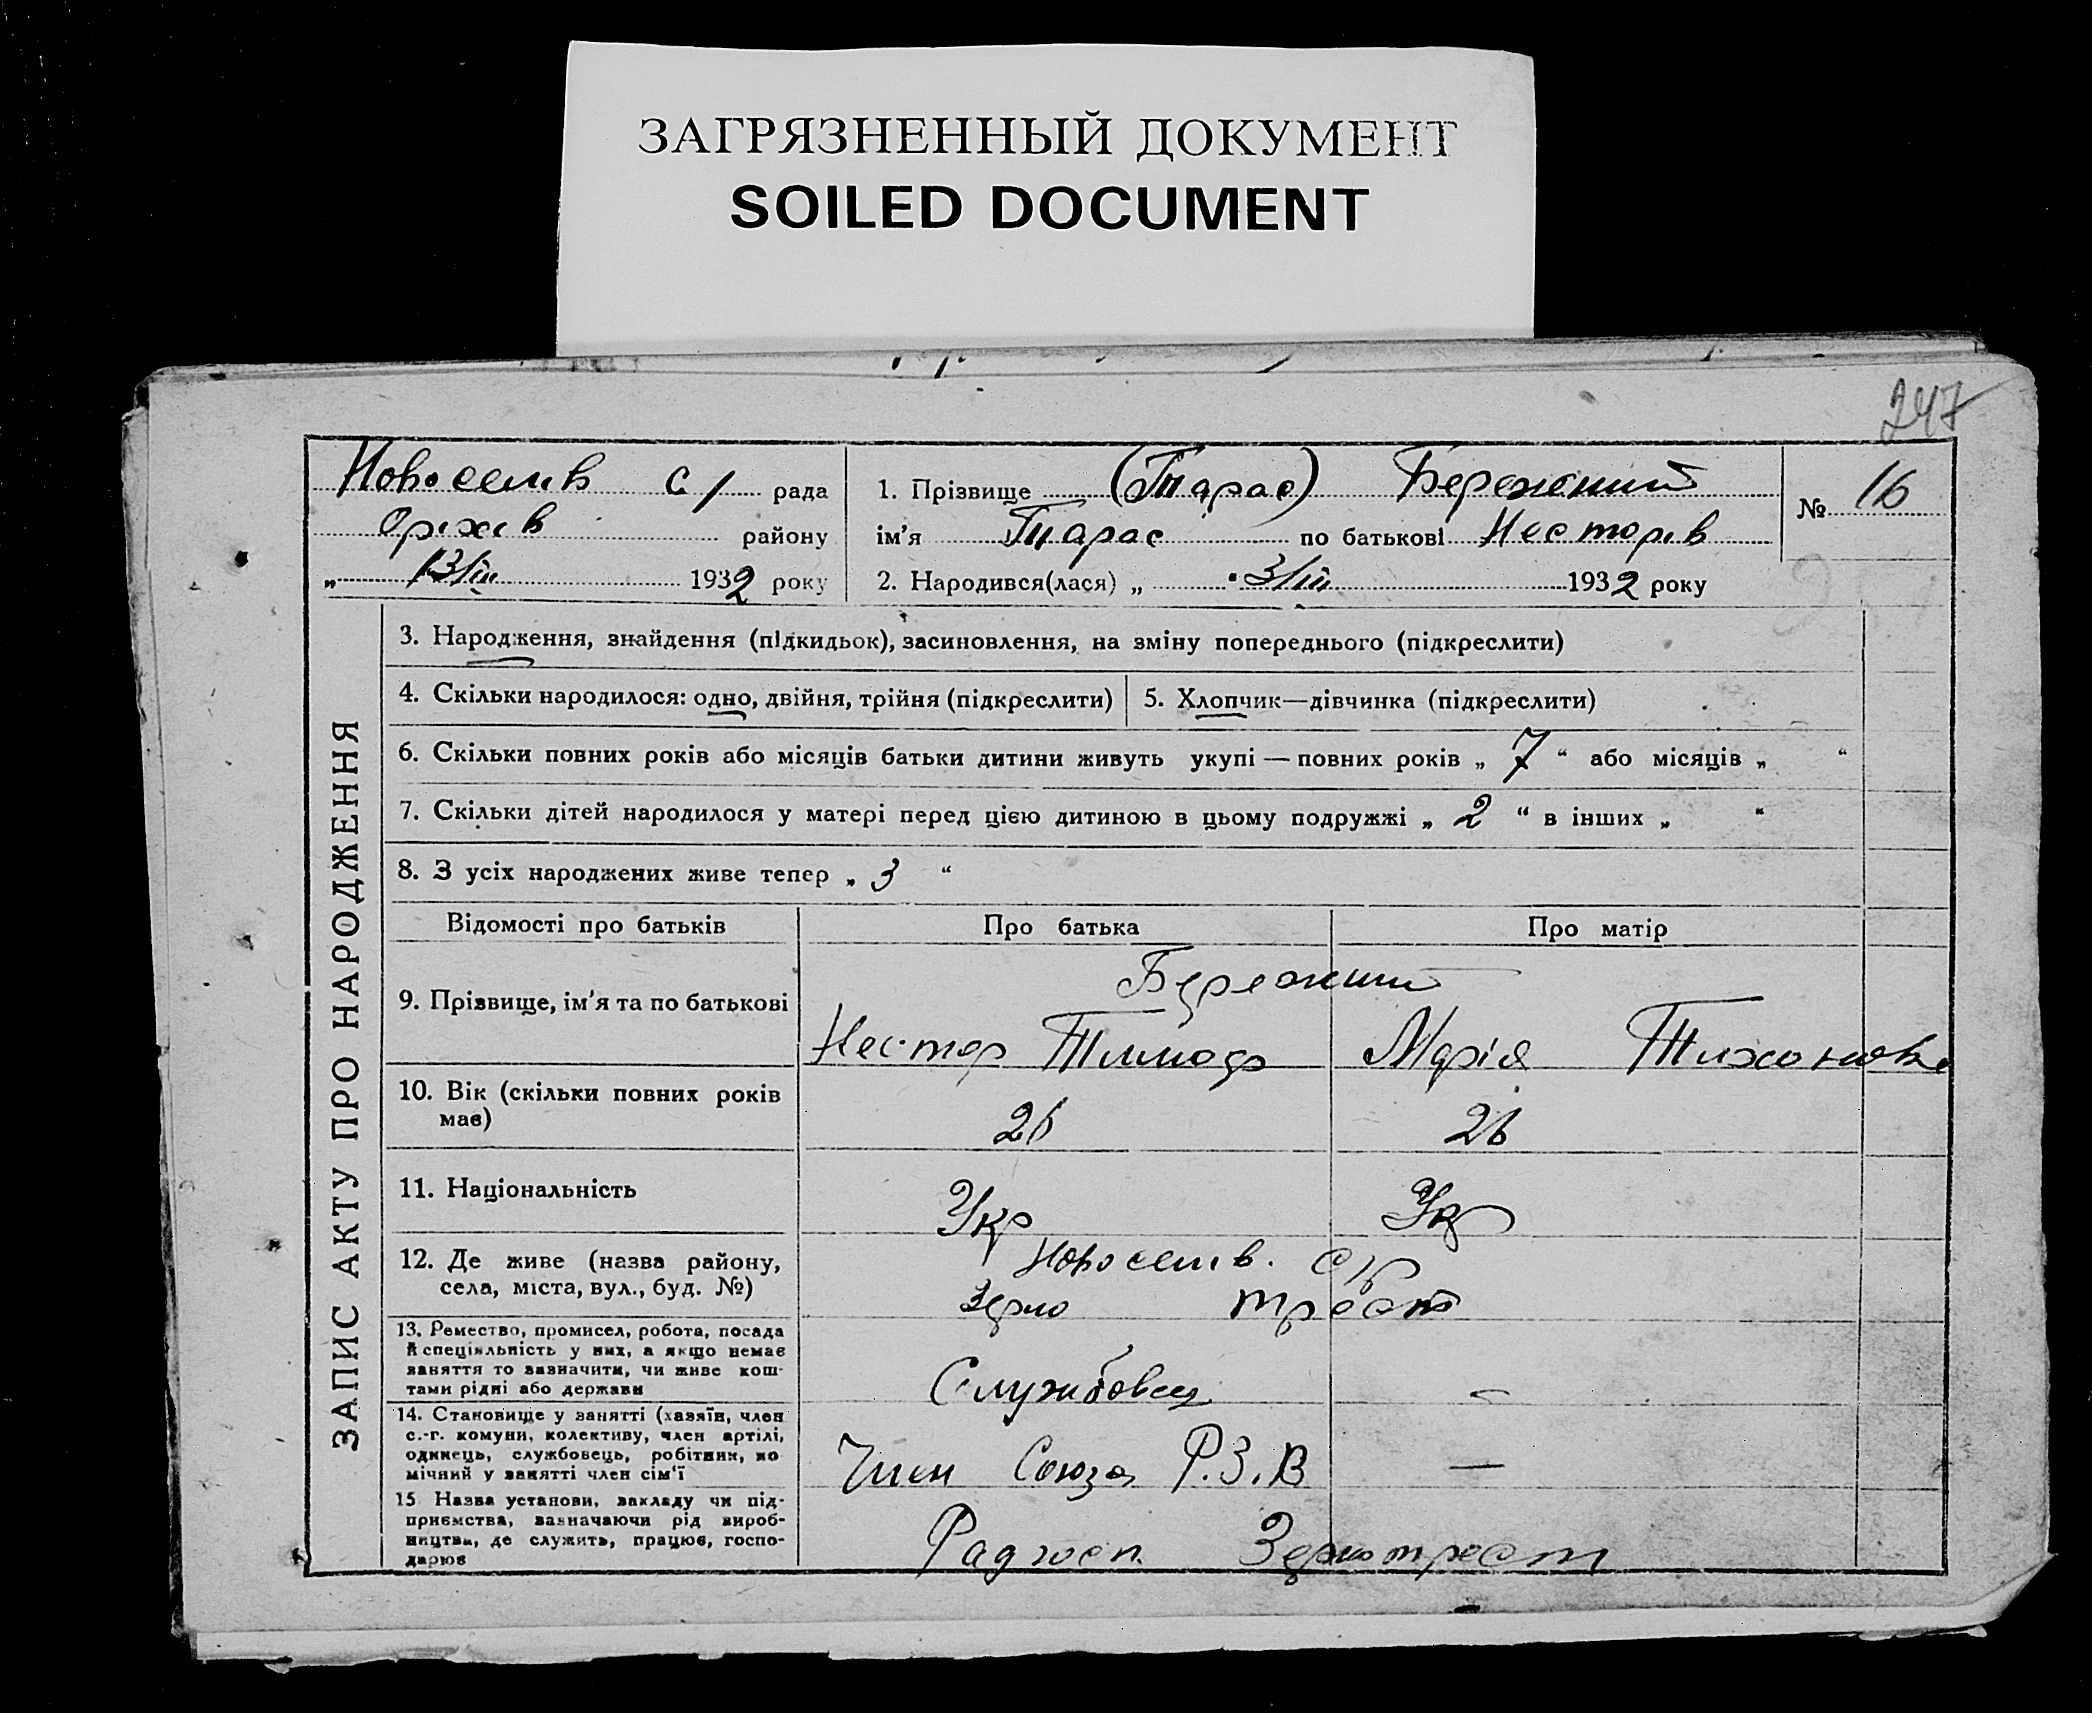 ЗАГРЯЗНЕННЫЙ ДОКУМЕНТ
SOILED DOCUMENT
247
Новоселів с/ рада
Оріхів району
„ 13/III 1932 року
1. Прізвище (Тарас) Бережний
ім’я Тарас по батькові Несторів
№ 16
2. Народився(лася) „ 3/III 1932 року
ЗАПИС АКТУ ПРО НАРОДЖЕННЯ
3. Народження, знайдення (підкидьок), засиновлення, на зміну попереднього (підкреслити)
4. Скільки народилося: одно, двійня, трійня (підкреслити) 5. Хлопчик—дівчинка (підкреслити)
6. Скільки повних років або місяців батьки дитини живуть укупі — повних років „ 7 “ або місяців „ “
7. Скільки дітей народилося у матері перед цією дитиною в цьому подружжі „ 2 “ в інших „ “
8. З усіх народжених живе тепер „ 3 “
Відомості про батьків Про батька Про матір
9. Прізвище, ім’я та по батькові
Бережний
Нестор Тимоф Марія Тихонова
10. Вік (скільки повних років
має)
26 26
11. Національність
Укр Укр
12. Де живе (назва району,
села, міста, вул., буд. №)
Новоселів. с/р
Зерно трест
13. Ремество, промисел, робота, посада
й спеціяльність у них, а якщо немає
заняття то зазначити, чи живе кош-
тами рідні або держави
Службовец —
14. Становище у занятті (хазяїн, член
с.-г. комуни, колективу, член артілі,
одинець, службовець, робітник, по
мічний у занятті член сім’ї
Член Союза Р.З.В —
15 Назва установи, закладу чи під-
приємства, зазначаючи рід вироб-
ництва, де служить, працює, госпо-
дарює
Радгосп. Зернотрест